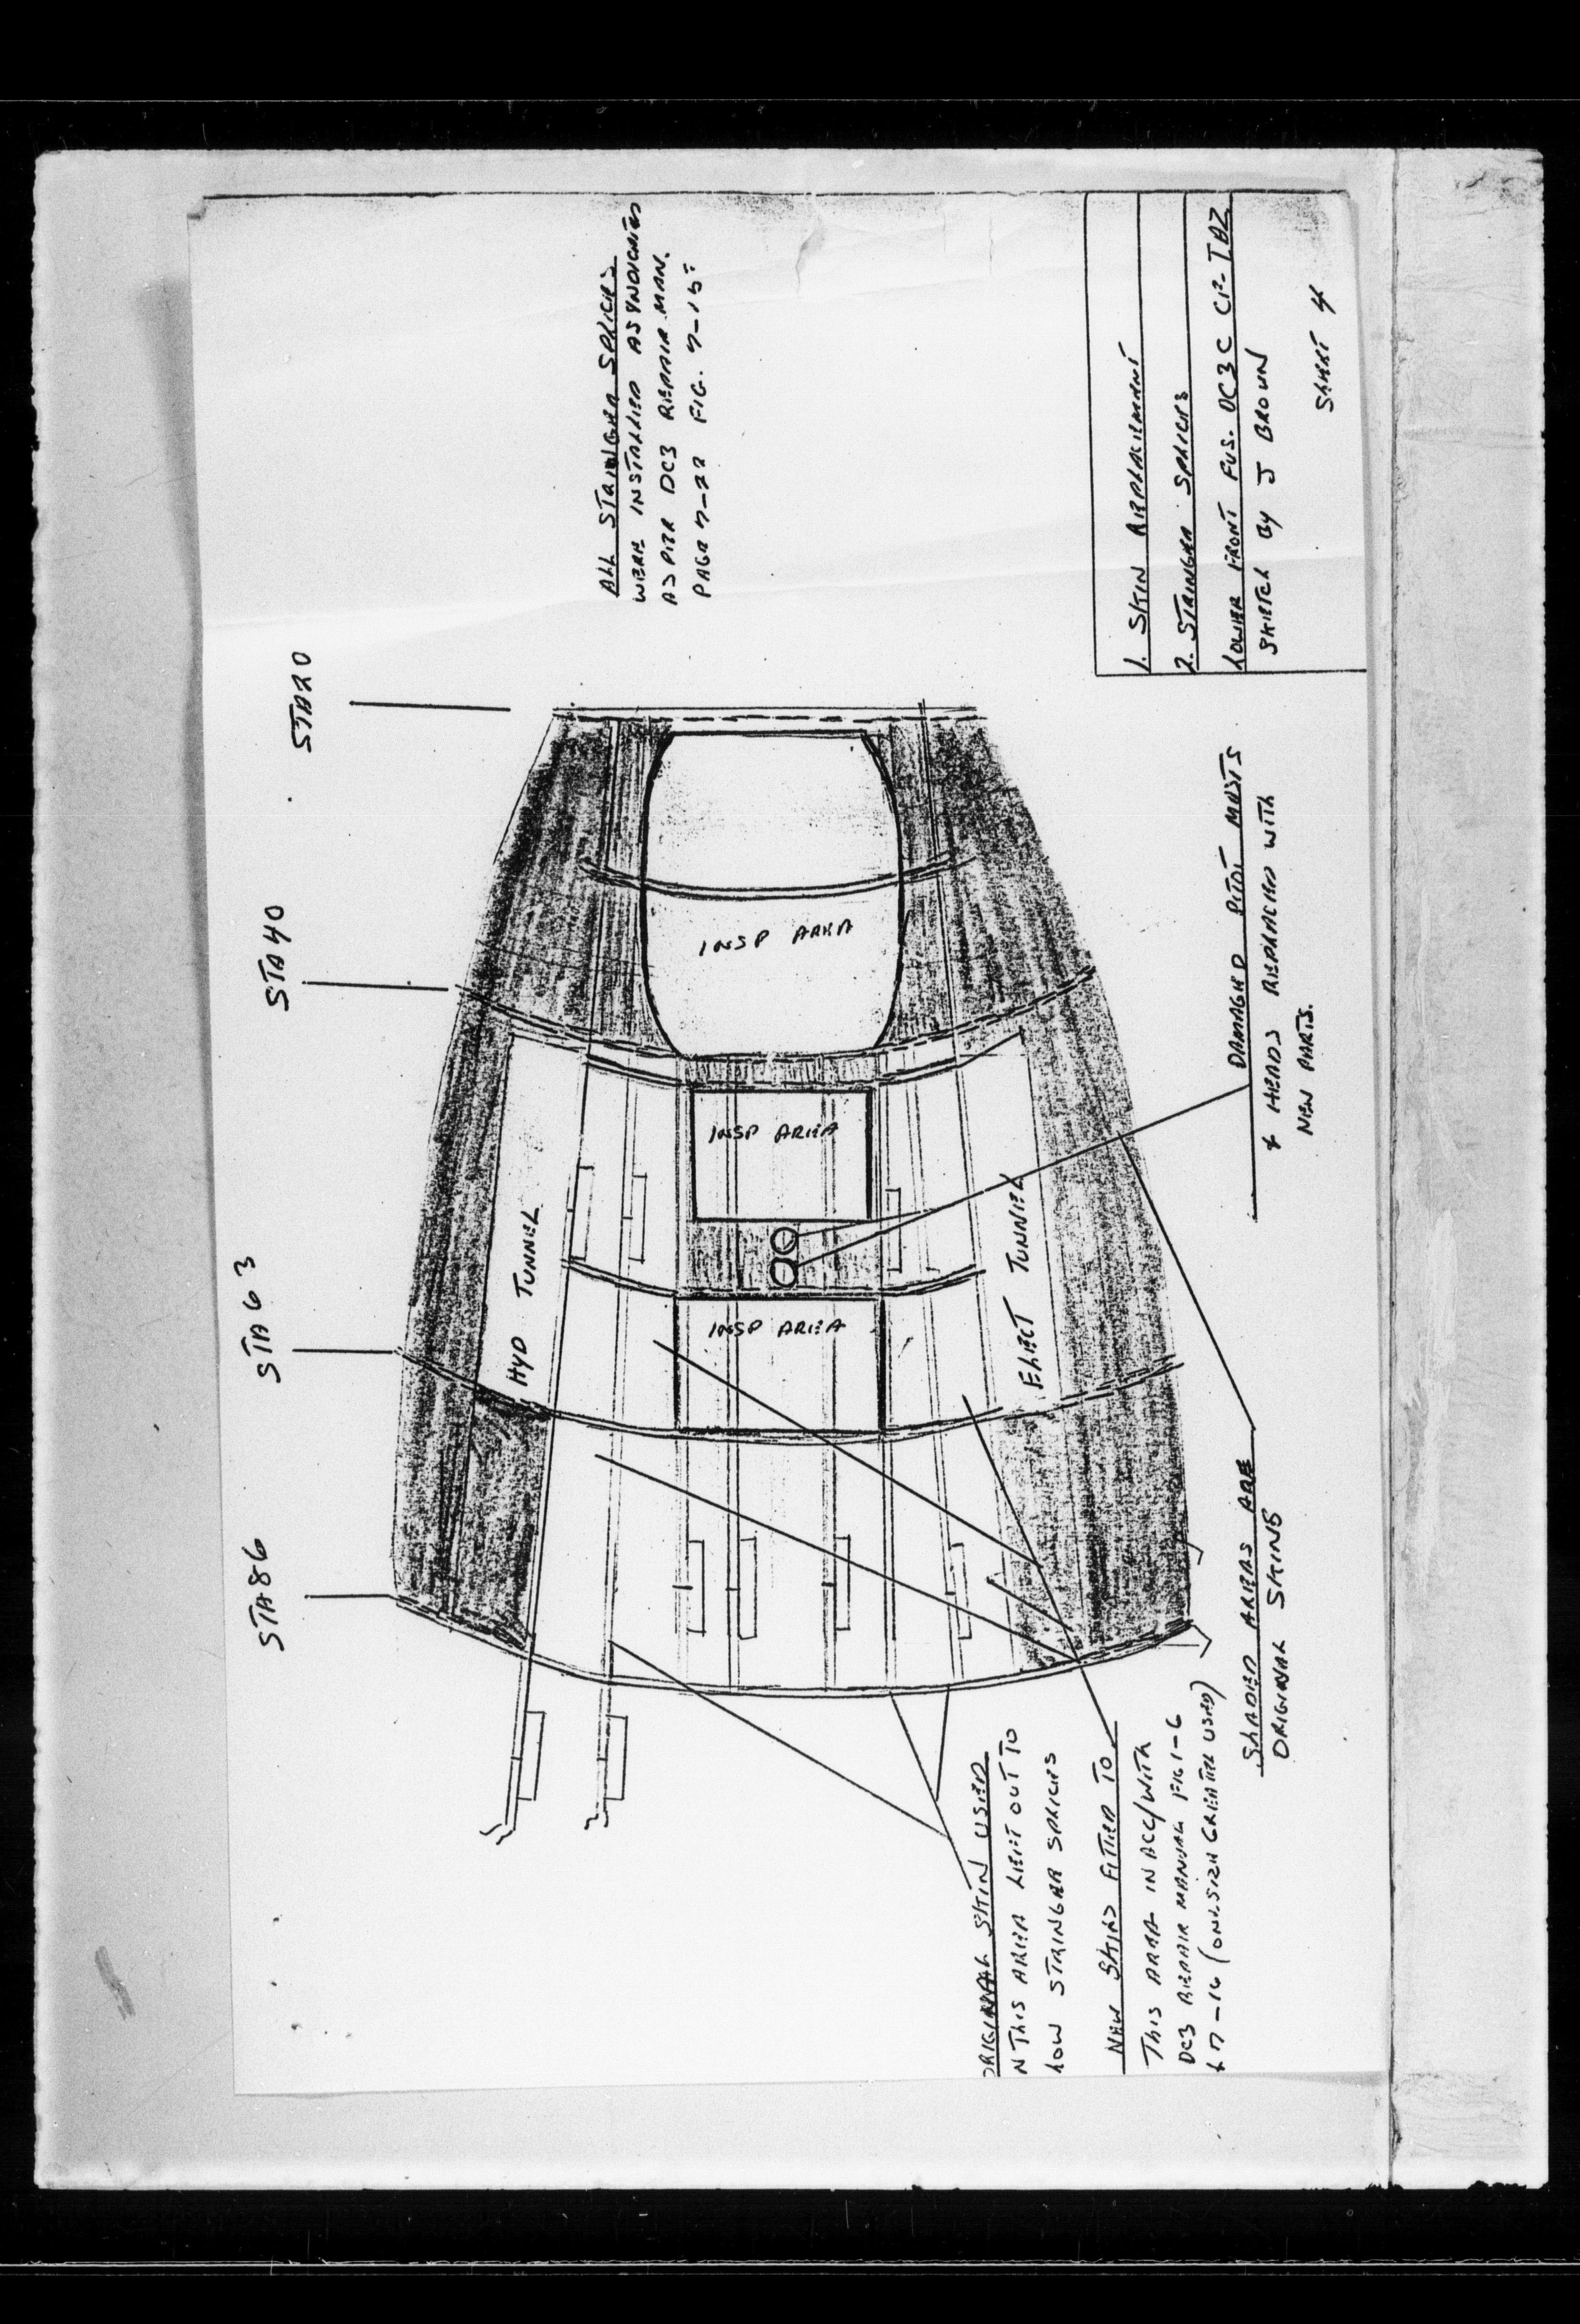 STA 20
STA 40
STA 63
STA 86
ALL STRINGER SPLICES
WERE INSTALLED AS
AS PER DC3 REPAIR MAN.
PAGE 7-22 FIG. 7-15
INSP AREA
INSP AREA
INSP AREA
HYD TUNNEL
ELECT TUNNEL
ORIGINAL SKIN USED
N THIS AREA LEFT OUT TO
HOW STRINGER SPLICES
NEW SKINS FITTED TO
THIS AREA IN ACC/WITH
DC3 REPAIR MANUAL FIG 1-6
& 7-16 (ONE SIZE GREATER USED)
SHADED AREAS ARE
ORIGINAL SKINS
DAMAGED PITOT MASTS
& HEADS REPLACED WITH
NEW PARTS.
1. SKIN REPLACEMENT
2. STRINGER SPLICES
LOWER FRONT FUS. DC3C CF-TDZ
SKETCH BY J BROWN
SHEET 4